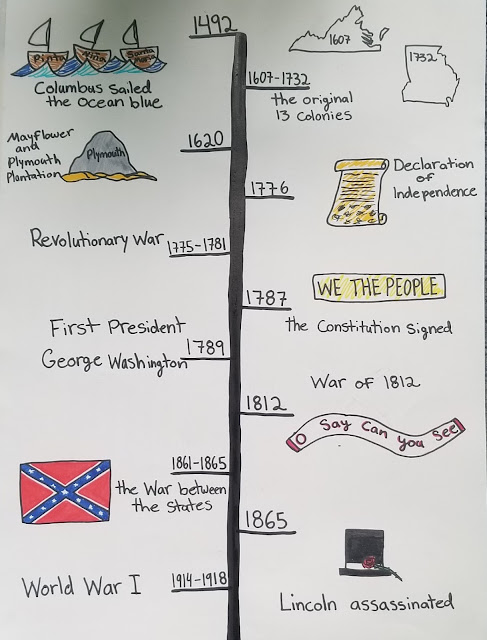 1492
Pinta Niña Santa Maria
Columbus sailed
the ocean blue
1607
1732
1607-1732
the original
13 colonies
Mayflower
and
Plymouth
Plantation
Plymouth
1620
1776
Declaration
of
Independence
Revolutionary War
1775-1781
1787
WE THE PEOPLE
the Constitution signed
First President
George Washington
1789
War of 1812
1812
O Say Can you See
1861-1865
the War between
the States
1865
Lincoln assassinated
World War I
1914-1918